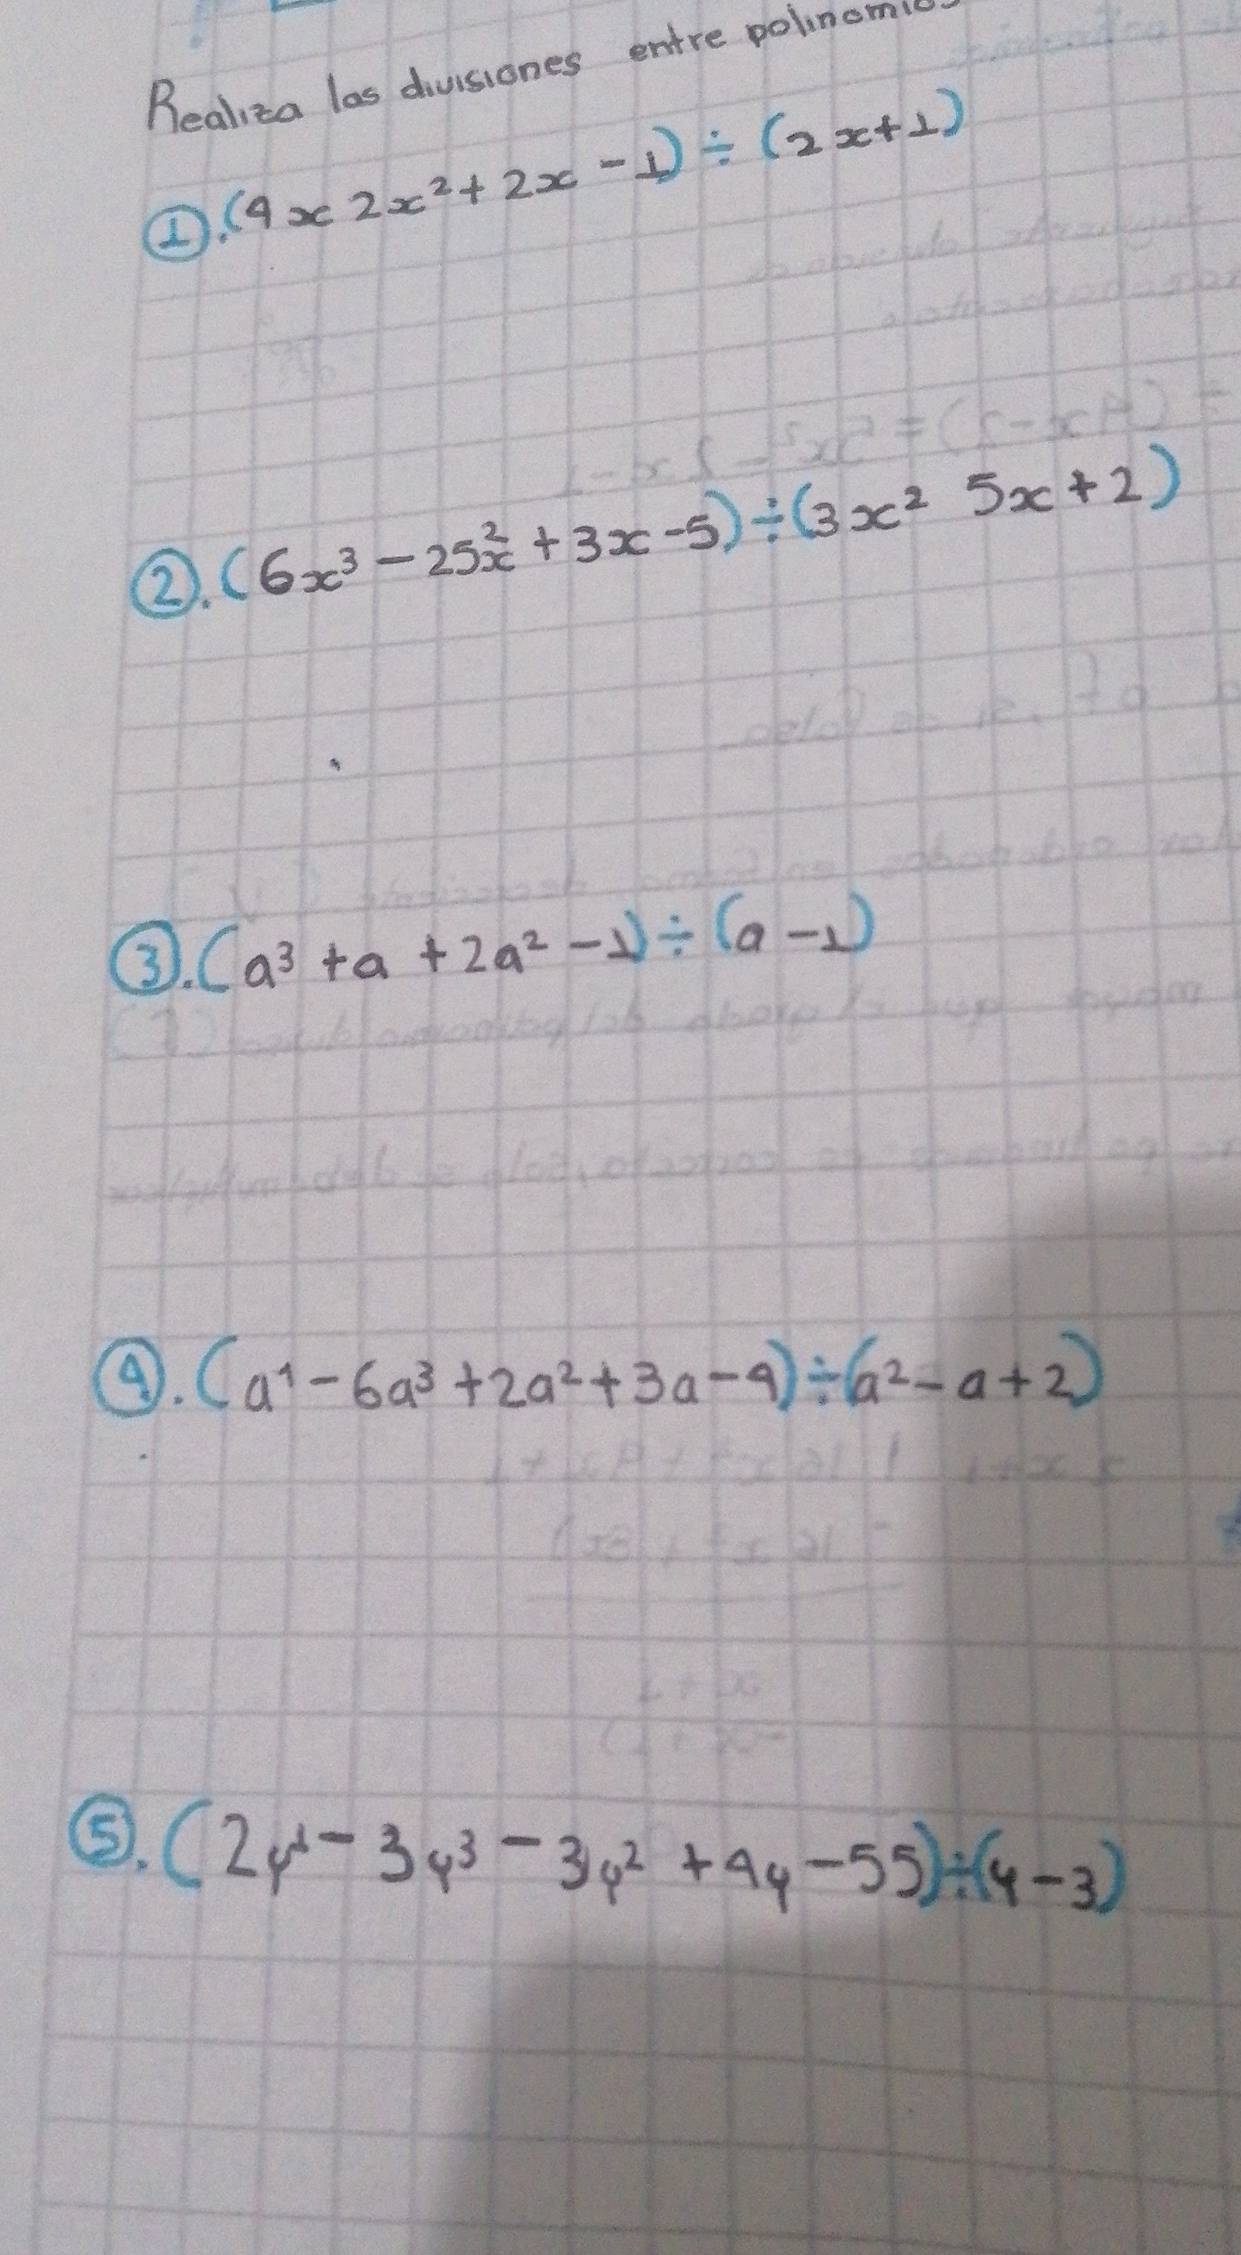 Realiza las divisiones entre polinomios
①.(4x 2x²+2x -1) ÷ (2x+1)
②.(6x³-25x²+3x-5)÷(3x² 5x+2)
③.(a³+a+2a²-1)÷(a-1)
④.(a⁴-6a³+2a²+3a-4)÷(a²-a+2)
⑤.(2y⁴-3y³-3y²+4y-55)÷(y-3)